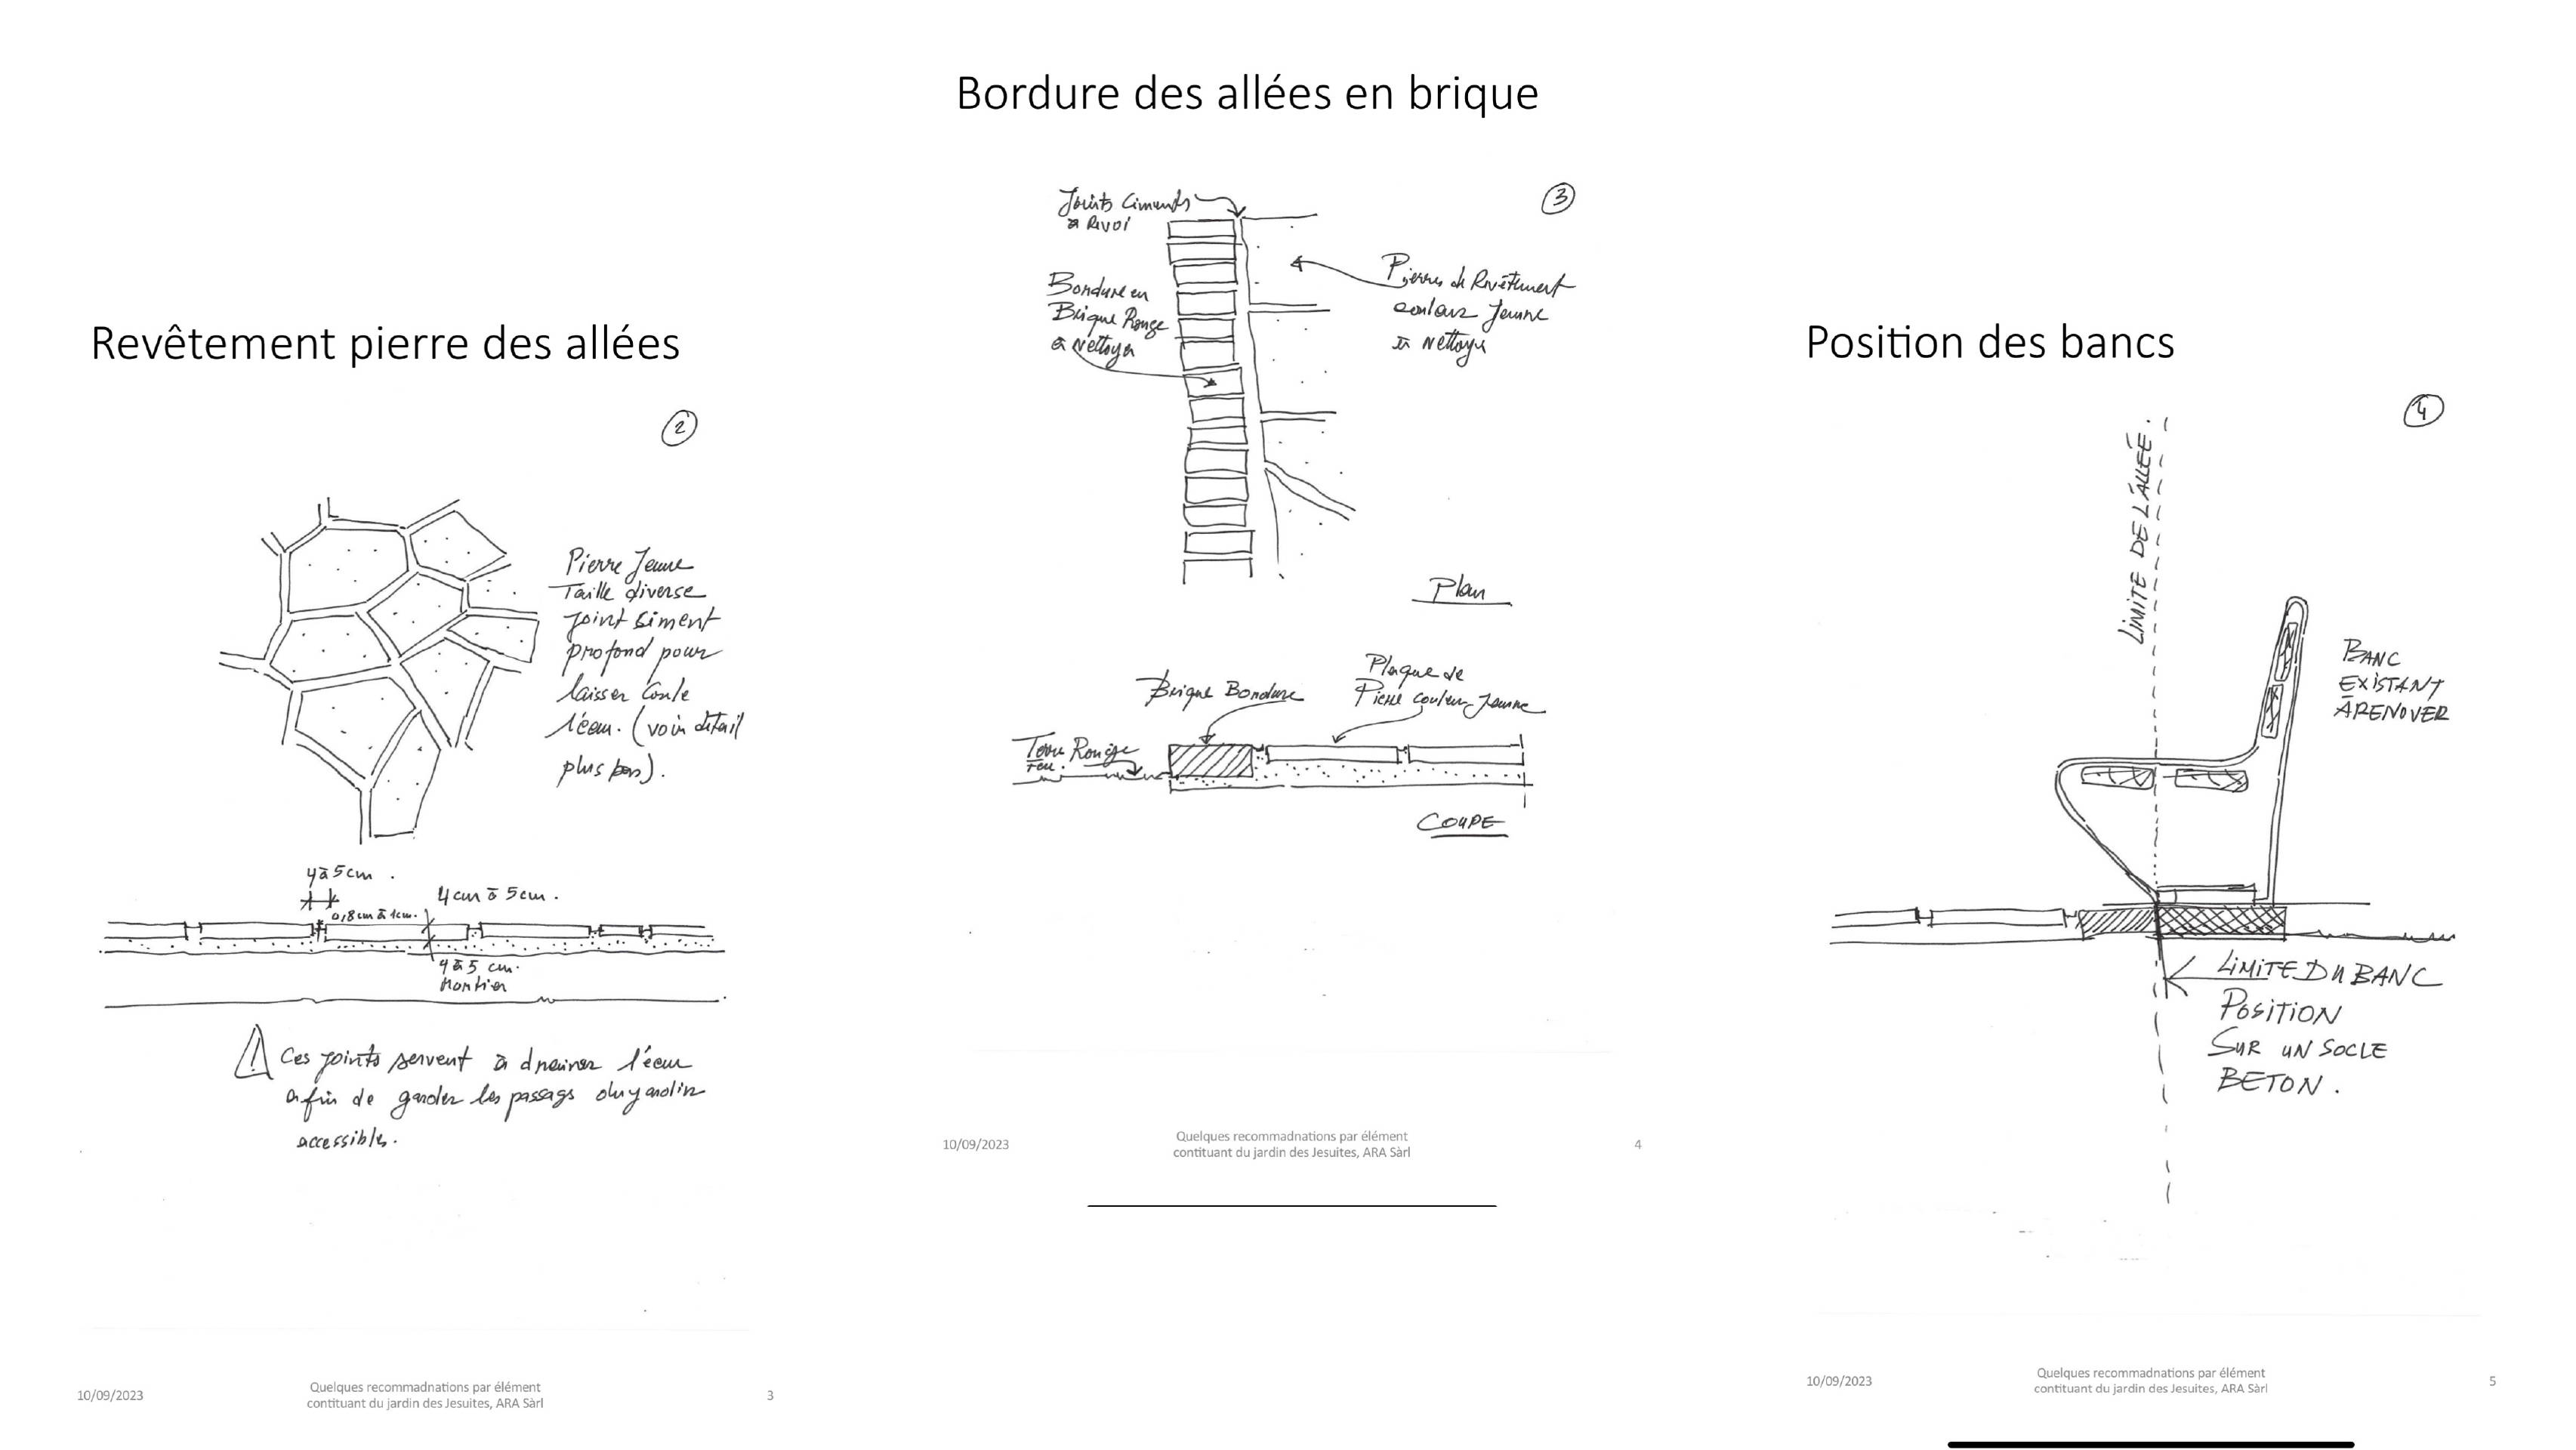 Revêtement pierre des allées
2
Pierre Jaune
Taille diverse
joint siment
profond pour
laisser coule
l'éau. (voir détail
plus bas).
4 à 5cm.
4cm à 5cm.
0,8cm à 1cm.
4 à 5 cm.
Mortier
Ces joints servent à drainer l'éau
afin de garder les passags du jardin
accessibles.
10/09/2023
Quelques recommadnations par élément
contituant du jardin des Jesuites, ARA Sàrl
3
Bordure des allées en brique
3
Joints Ciments
à Rivoi
Bordure en
Brique Rouge
à Nettoyer
Pierres de Revêtement
couleur Jaune
à Nettoyer
Plan
Brique Bordure
Plaque de
Pierre couleur Jaune
Terre Rouge
COUPE
10/09/2023
Quelques recommadnations par élément
contituant du jardin des Jesuites, ARA Sàrl
4
Position des bancs
4
LIMITE DE L'ALLEÉ.
BANC
EXISTANT
À RENOVER
LIMITE DU BANC
POSITION
SUR UN SOCLE
BETON.
10/09/2023
Quelques recommadnations par élément
contituant du jardin des Jesuites, ARA Sàrl
5